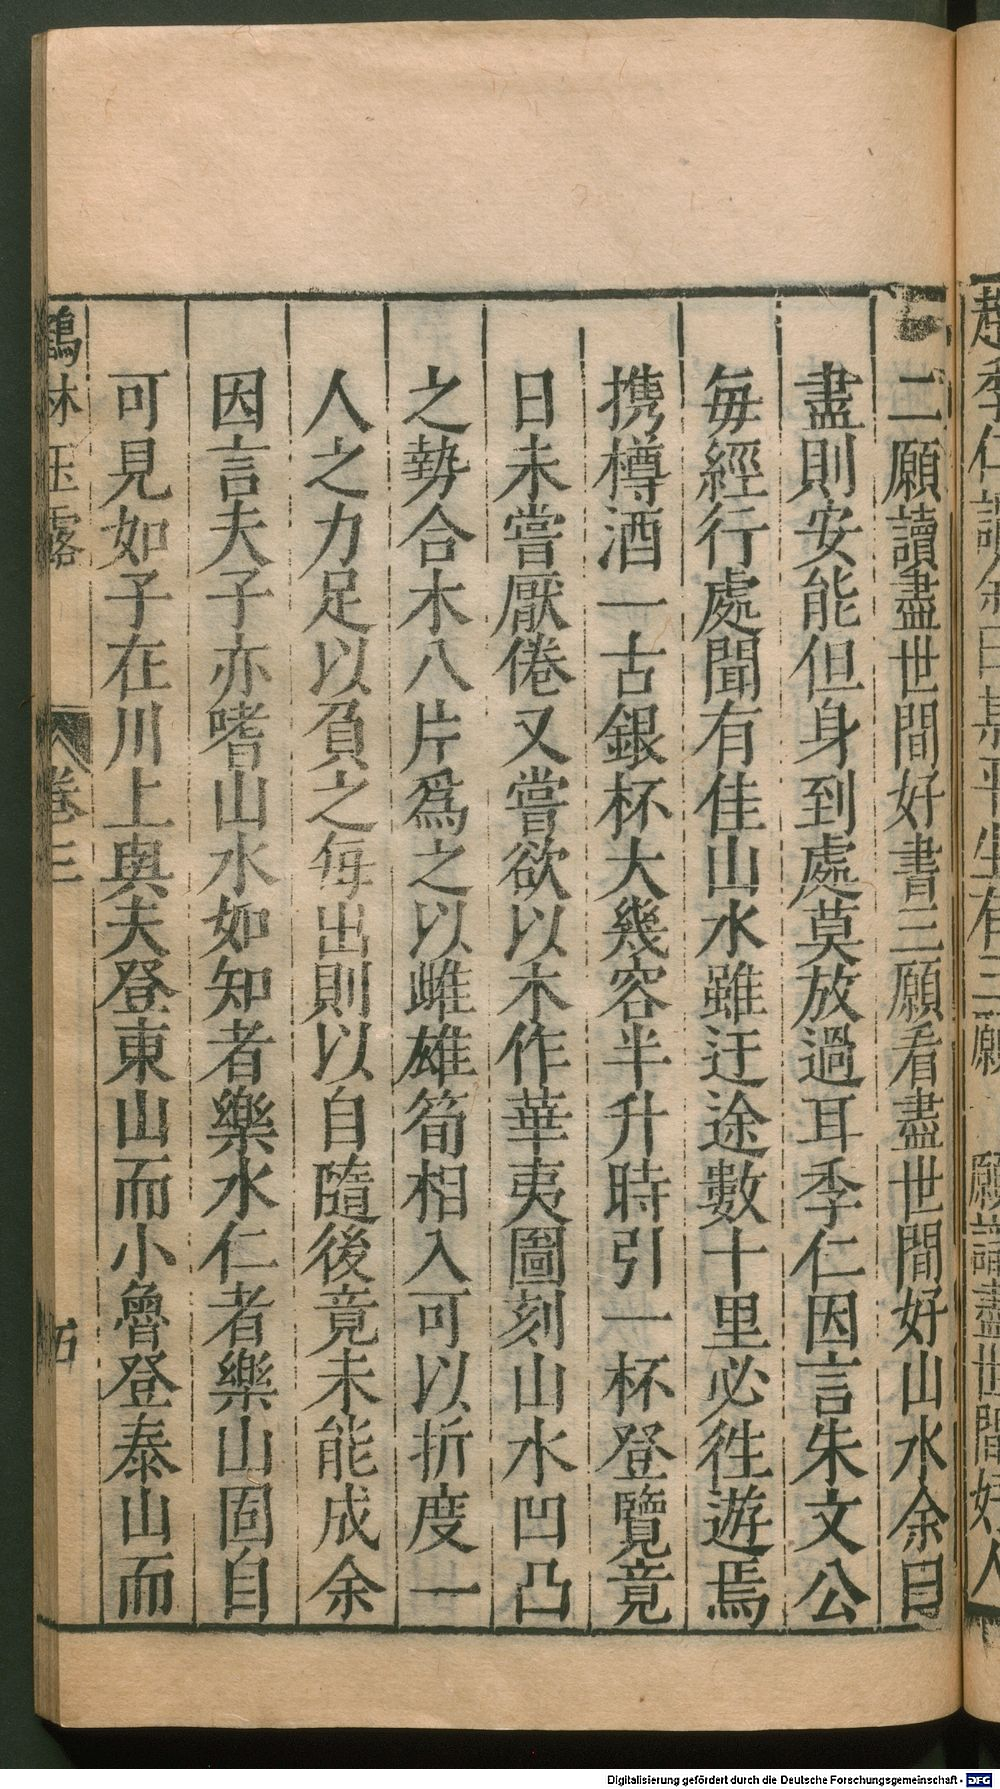 趙季仁謂余曰某平生有三願一願識盡世間好人
二願讀盡世間好書三願看盡世間好山水余曰
盡則安能但身到處莫放過耳季仁因言朱文公
每經行處聞有佳山水雖迂途數十里必徃遊焉
携樽酒一古銀杯大幾容半升時引一杯登覽竟
日未嘗厭倦又嘗欲以木作華夷圖刻山水凹凸
之勢合木八片爲之以雌雄筍相入可以折度一
人之力足以負之每出則以自隨後竟未能成余
因言夫子亦嗜山水如知者樂水仁者樂山固自
可見如子在川上與夫登東山而小魯登泰山而
鶴林玉露 卷三 五
Digitalisierung gefördert durch die Deutsche Forschungsgemeinschaft - DFG